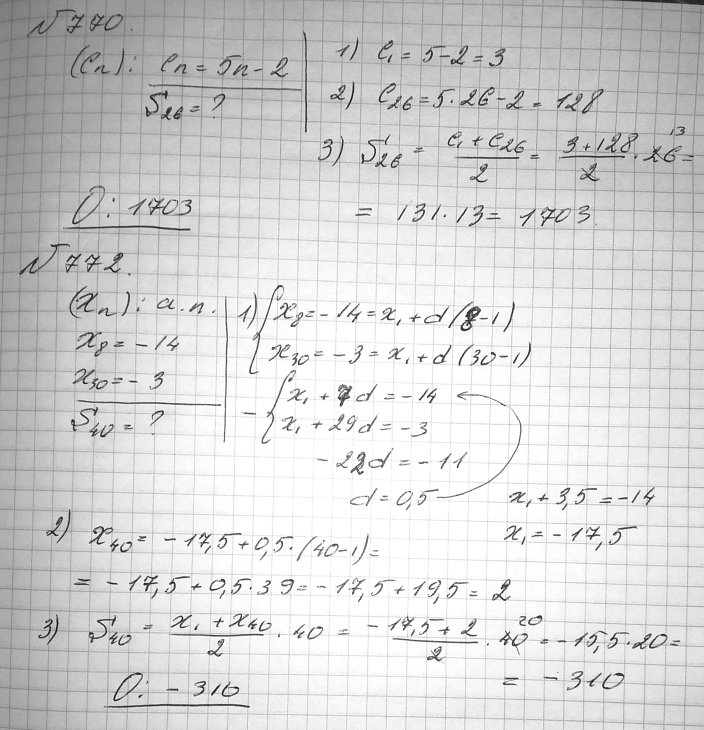 №770.
(Cn): Cn = 5n - 2
S26 = ?
1) C1 = 5 - 2 = 3
2) C26 = 5 · 26 - 2 = 128
3) S26 = (C1 + C26)/2 = (3 + 128)/2 · 26 = 13
= 131 · 13 = 1703.
О: 1703
№772.
(xn): а.п.
x8 = -14
x30 = -3
S40 = ?
1) { x8 = -14 = x1 + d(8-1)
x30 = -3 = x1 + d(30-1)
- { x1 + 7d = -14
x1 + 29d = -3
-22d = -11
d = 0,5
x1 + 3,5 = -14
x1 = -17,5
2) x40 = -17,5 + 0,5 · (40-1) =
= -17,5 + 0,5 · 39 = -17,5 + 19,5 = 2
3) S40 = (x1 + x40)/2 · 40 = (-17,5 + 2)/2 · 40 20 = -15,5 · 20 =
= -310
О: -310